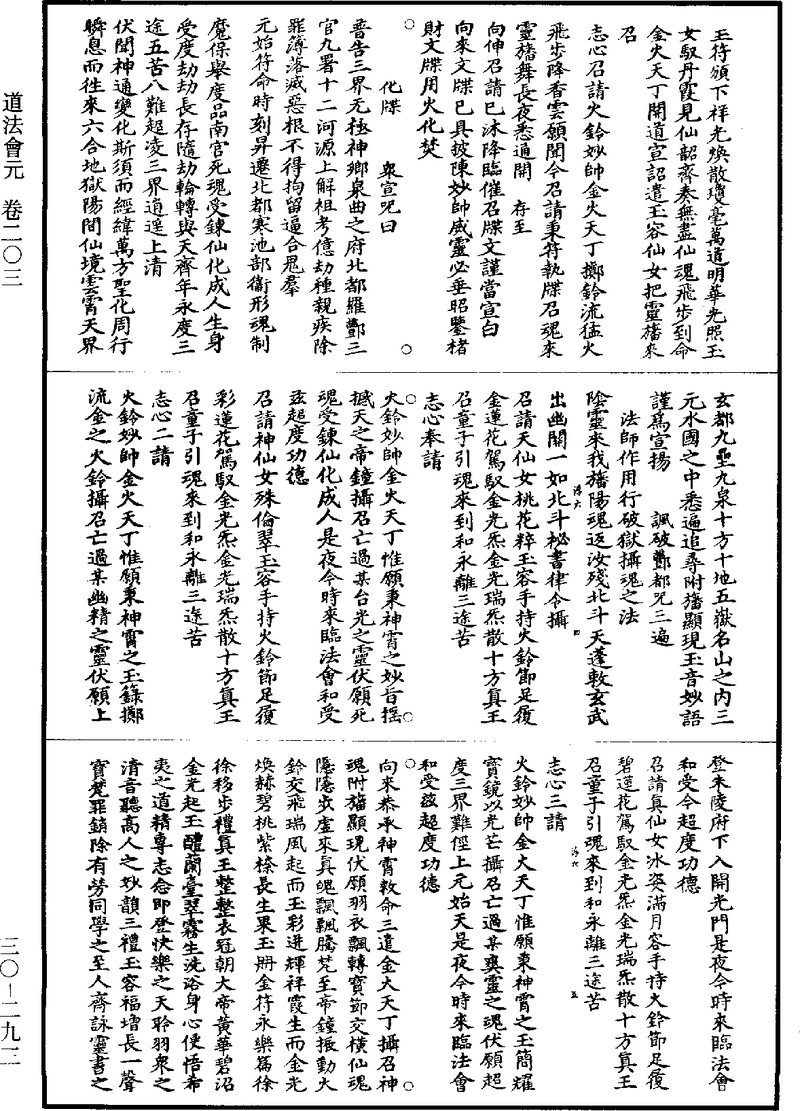 道法會元 卷二〇三
玉符頒下祥光煥散瓊毫萬道明華光照玉
女馭丹霞見仙韶齊奏無盡仙魂飛步到命
金火天丁開道宣詔遣玉容仙女把靈旛來
召
志心召請火鈴妙帥金火天丁擲鈴流猛火
飛步降香雲願聞今召請秉符執牒召魂來
靈旛舞長夜悉通開 存至
向伸召請已沐降臨催召牒文謹當宣白
向來文牒已具披陳妙帥威靈必垂昭鑒楮
財文牒用火化焚
化牒 衆宣咒曰
普告三界无極神鄉泉曲之府北都羅酆三
官九署十二河源上解祖考億劫種親疾除
罪簿落滅惡根不得拘留逼合鬼羣
元始符命時刻昇遷北都寒池部衛形魂制
魔保舉度品南宮死魂受鍊仙化成人生身
受度劫劫長存隨劫輪轉與天齊年永度三
途五苦八難超凌三界逍遥上清
伏聞神通變化斯須而經緯萬方聖化周行
瞬息而往來六合地獄陽間仙境雲霄天界
玄都九壘九泉十方十地五嶽名山之内三
元水國之中悉遍追尋附旛顯現玉音妙語
謹爲宣揚 諷破酆都咒三遍
法師作用行破獄攝魂之法
陰靈來我旛陽魂返汝殘北斗天蓬敕玄武
出幽關一如北斗祕書律令攝
召請天仙女桃花粹玉容手持火鈴節足履
金蓮花駕馭金光炁金光瑞炁散十方真王
召童子引魂來到和永離三途苦
志心奉請
火鈴妙帥金火天丁惟願秉神霄之妙旨摇
撼天之帝鐘攝召亡過某台光之靈伏願死
魂受鍊仙化成人是夜今時來臨法會和受
兹超度功德
召請神仙女殊倫翠玉容手持火鈴節足履
彩蓮花駕馭金光炁金光瑞炁散十方真王
召童子引魂來到和永離三途苦
志心二請
火鈴妙帥金火天丁惟願秉神霄之玉籙擲
流金之火鈴攝召亡過某幽精之靈伏願上
登朱陵府下入開光門是夜今時來臨法會
和受今超度功德
召請真仙女冰姿滿月容手持火鈴節足履
碧蓮花駕馭金光炁金光瑞炁散十方真王
召童子引魂來到和永離三途苦
志心三請
火鈴妙帥金火天丁惟願秉神霄之玉簡耀
寶鏡以光芒攝召亡過某爽靈之魂伏願超
度三界難徑上元始天是夜今時來臨法會
和受兹超度功德
向來恭承神霄敕命三遣金火天丁攝召神
魂附旛顯現伏願羽衣飄轉寶節交横仙魂
隱隱步虛來真魄飄飄騰梵至帝鐘振動火
鈴交飛瑞風起而玉彩迸輝祥霞生而金光
煥赫碧桃紫檢長生果玉册金符永樂篇徐
徐移步禮真王整整衣冠朝大帝黄華碧沼
金光起玉醴蘭臺翠霧生洗浴身心使悟希
夷之道精專志念即登快樂之天聆羽衆之
清音聽高人之妙韻三禮玉容福增長一聲
寶梵罪銷除有勞同學之至人齊詠靈書之
三〇—二九二